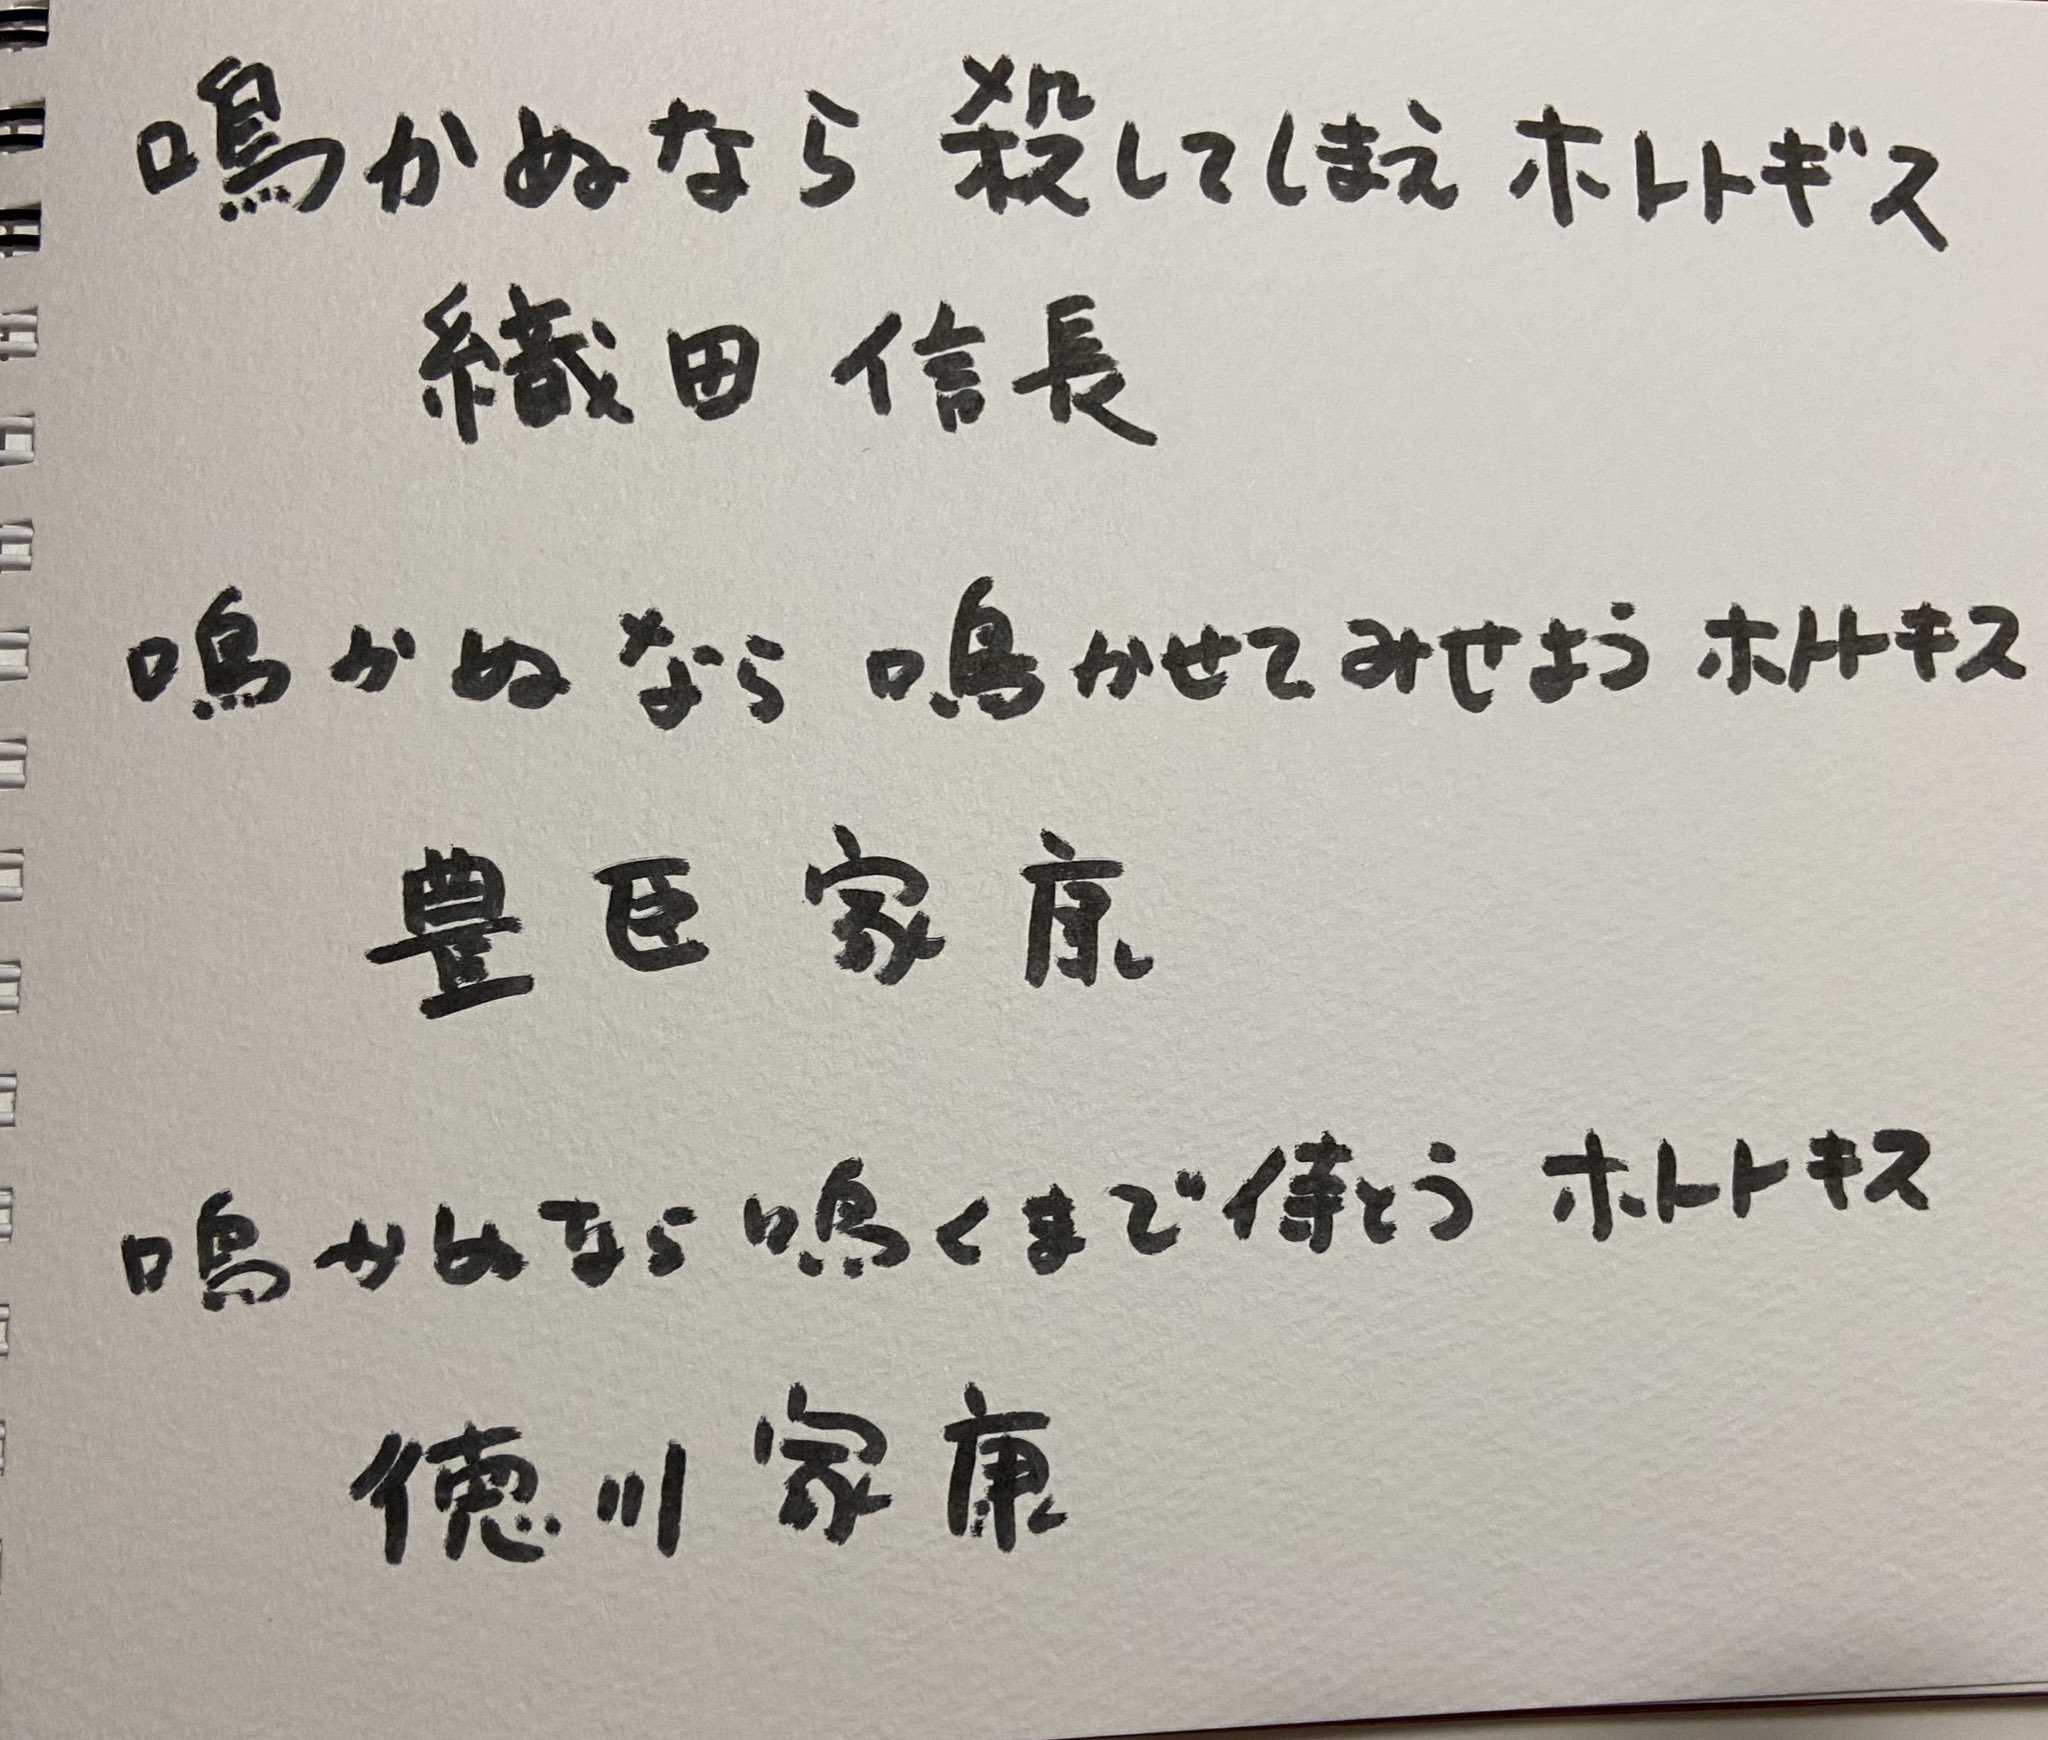 鳴かぬなら 殺してしまえ ホトトギス
織田 信長
鳴かぬなら 鳴かせてみせよう ホトトキス
豊臣家康
鳴かぬなら 鳴くまで待とう ホトトキス
徳川家康